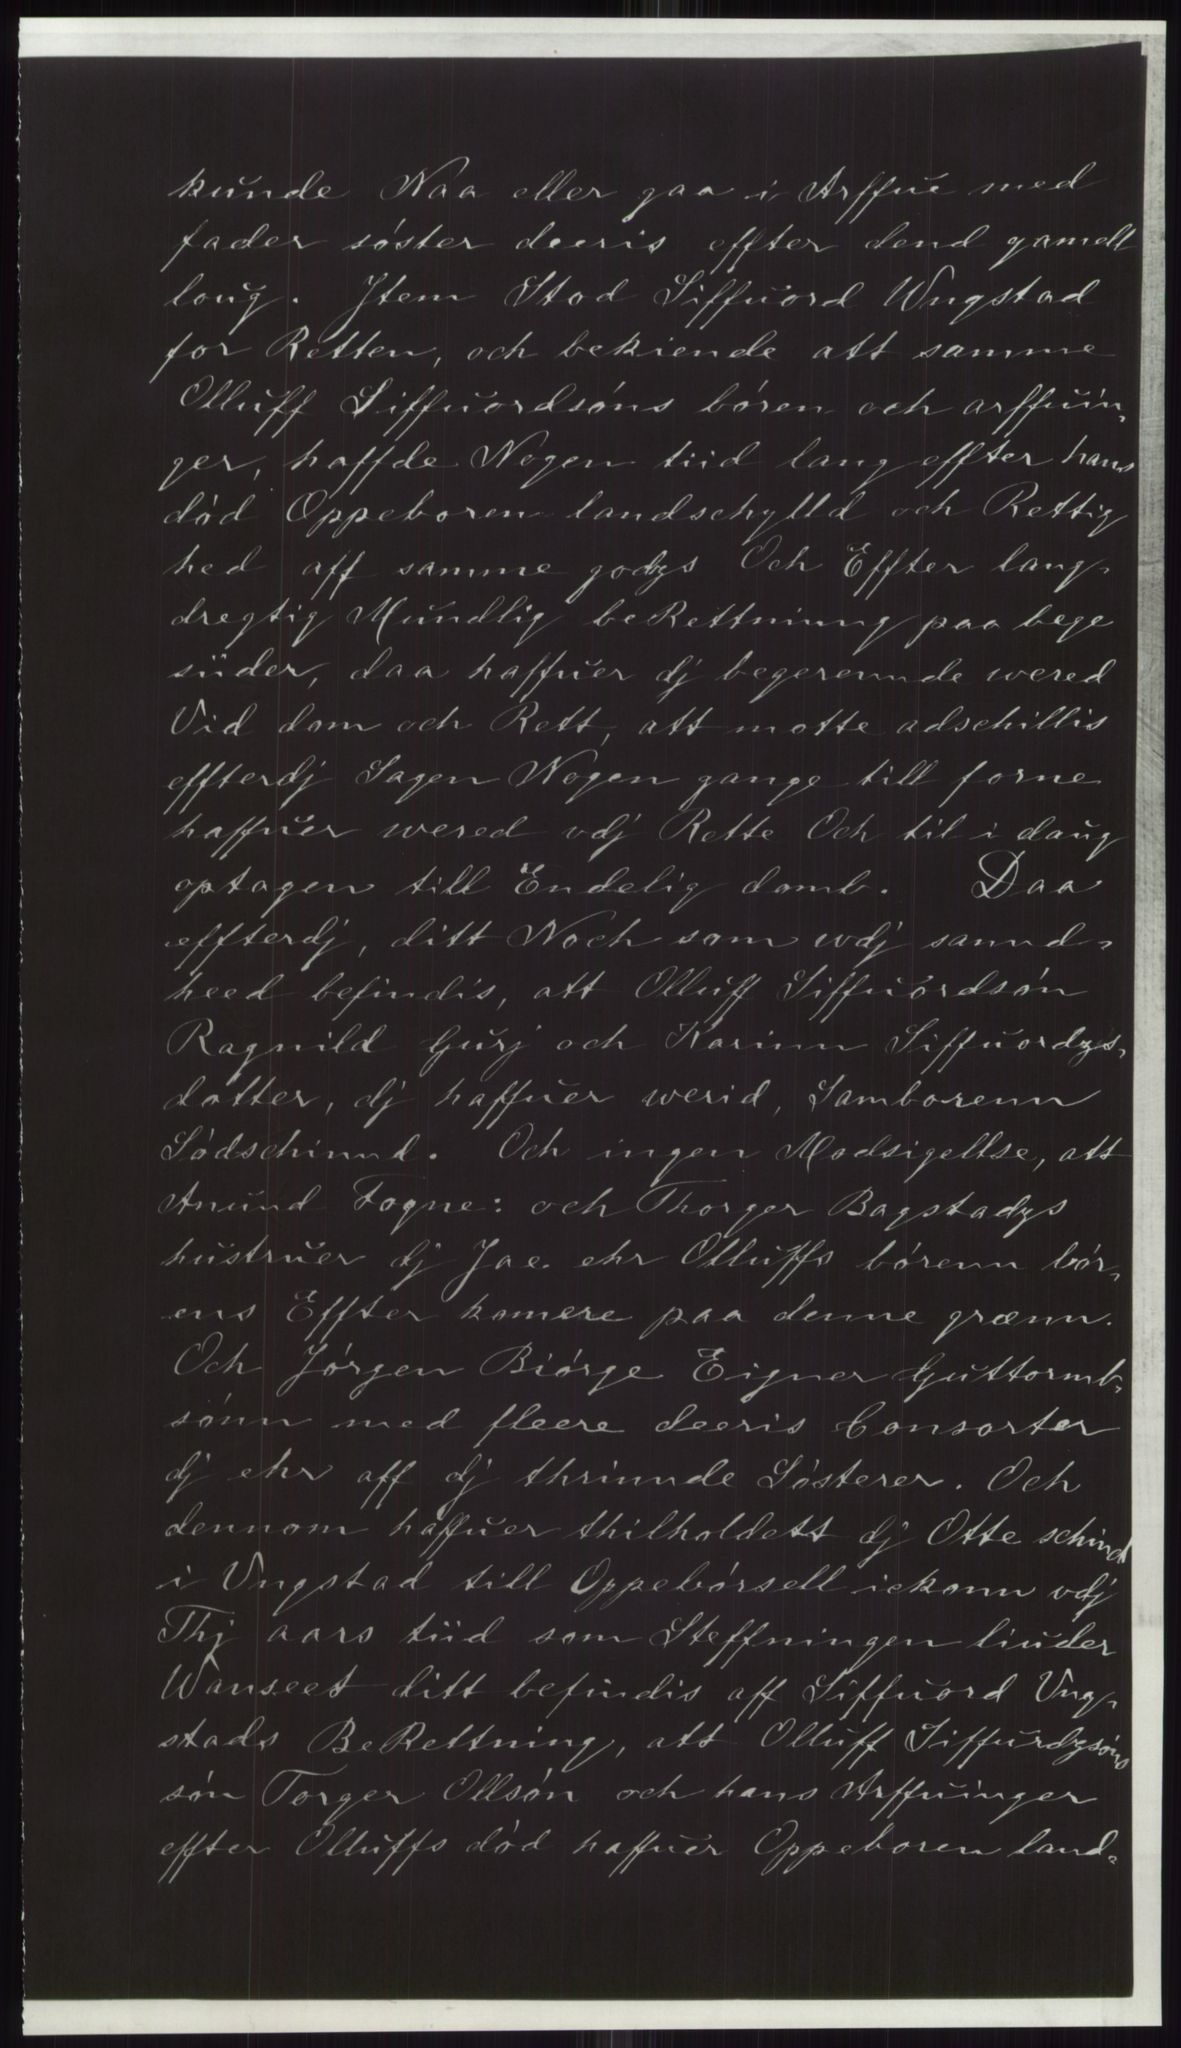 kunde Naa eller gaa i Arffue med
fader søster deeris effter dend gamell
loug. Jtem Stod Siffuord Wngstad
for Retten, och bekiende att samme
Olluff Siffuordsøns børen och arffuin-
ger, haffde Nogen tiid lang effter hans
død Oppeboren landschylld och Rettig
hed aff samme godzs Och Effter lang-
dregtig Mundlig beRettninng paa bege
siider, daa haffuer dj begerennde wered
Vid dom och Rett, att motte adschillis
effterdj Sagen Nogen gange till forne
haffuer wered vdj Rette Och til i daug
optagen till Endelig domb. Daa
effterdj, ditt Noch som wdj sannd-
heed befindis, att Olluff Siffuordsøn
Ragnild Gurj och Karinn Siffuordzs-
dotter, dj haffuer werid, Samborenn
Sødschinnd. Och ingen Modsigellse, att
Anund Fogne: och Thorger Bagstadzs
hustruer dj Jae ehr Olluffs børenn bør-
ens Effter komere paa denne grænn.
Och Jørgen Biørge Eigner Guttormb-
sønn med fleere deeris Consorter
dj ehr aff dj thrinnde Søsterer. Och
dennom haffuer thilholdett dj Otte schind
i Vngstad till Oppebørsell ickonn vdj
Thj aars tiid som Steffningen liuder
Wanseet ditt befindis aff Siffuord Vng-
stads BeRettning, att Olluff Siffurdzsøns
søn Torger Ollsøn och hans Arffuinger
effter Olluffs død haffuer Oppeboren land-